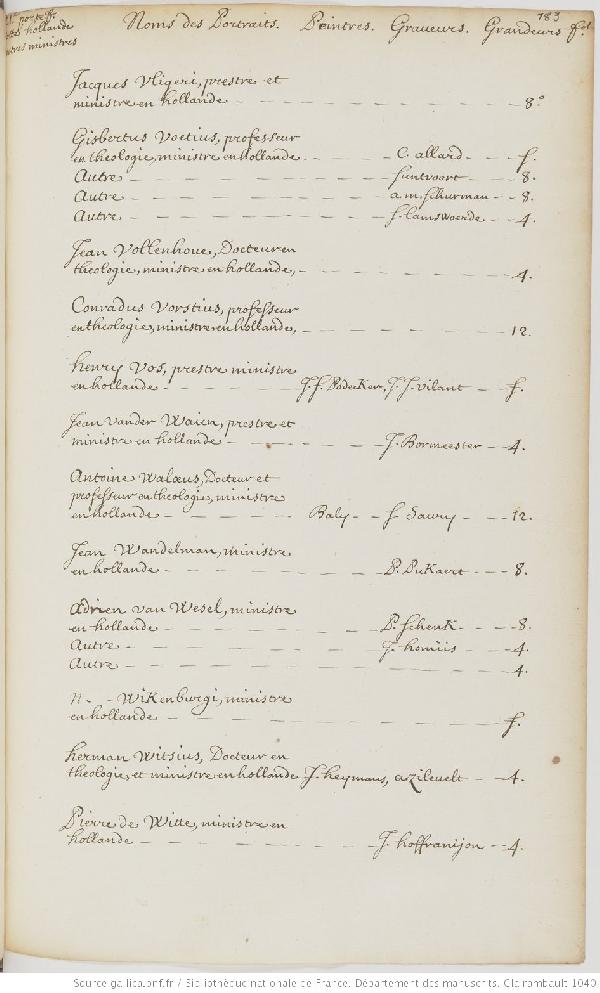 183
hollande
ministres
Noms des Portraits. Peintres. Graveurs. Grandeurs
Jacques Vligeri, prestre et
ministre en hollande 8.°
Gisbertus Voetius, professeur
en theologie, ministre en hollande C. allard f.
Autre suntvoort 8.
Autre a.m. schurman 8.
Autre f. lamswoerde 4.
Jean Vollenhoue, Docteur en
theologie, ministre en hollande, 4.
Conradus Vorstius, professeur
en theologie, ministre en hollande, 12.
henry Vos, prestre ministre
en hollande J.f. Bodecker, J.J. vilant f.
Jean vander Waien, prestre et
ministre en hollande J. Bormeester 4.
Antoine Walæus, Docteur et
professeur en theologie, ministre
en hollande Baly f. Sawry 12.
Jean Wandelman, ministre
en hollande P. Pickart 8.
Adrien van Wesel, ministre
en hollande P. schenk 8.
Autre J. homiis 4.
Autre 4.
n. Wikenburgi, ministre
en hollande f.
herman Witsius, Docteur en
theologie, et ministre en hollande J. heymans, a zileuelt 4.
Pierre de Witte, ministre en
hollande J. hoffranijon 4.
Source gallica.bnf.fr / Bibliothèque nationale de France. Département des manuscrits. Clairambault 1040